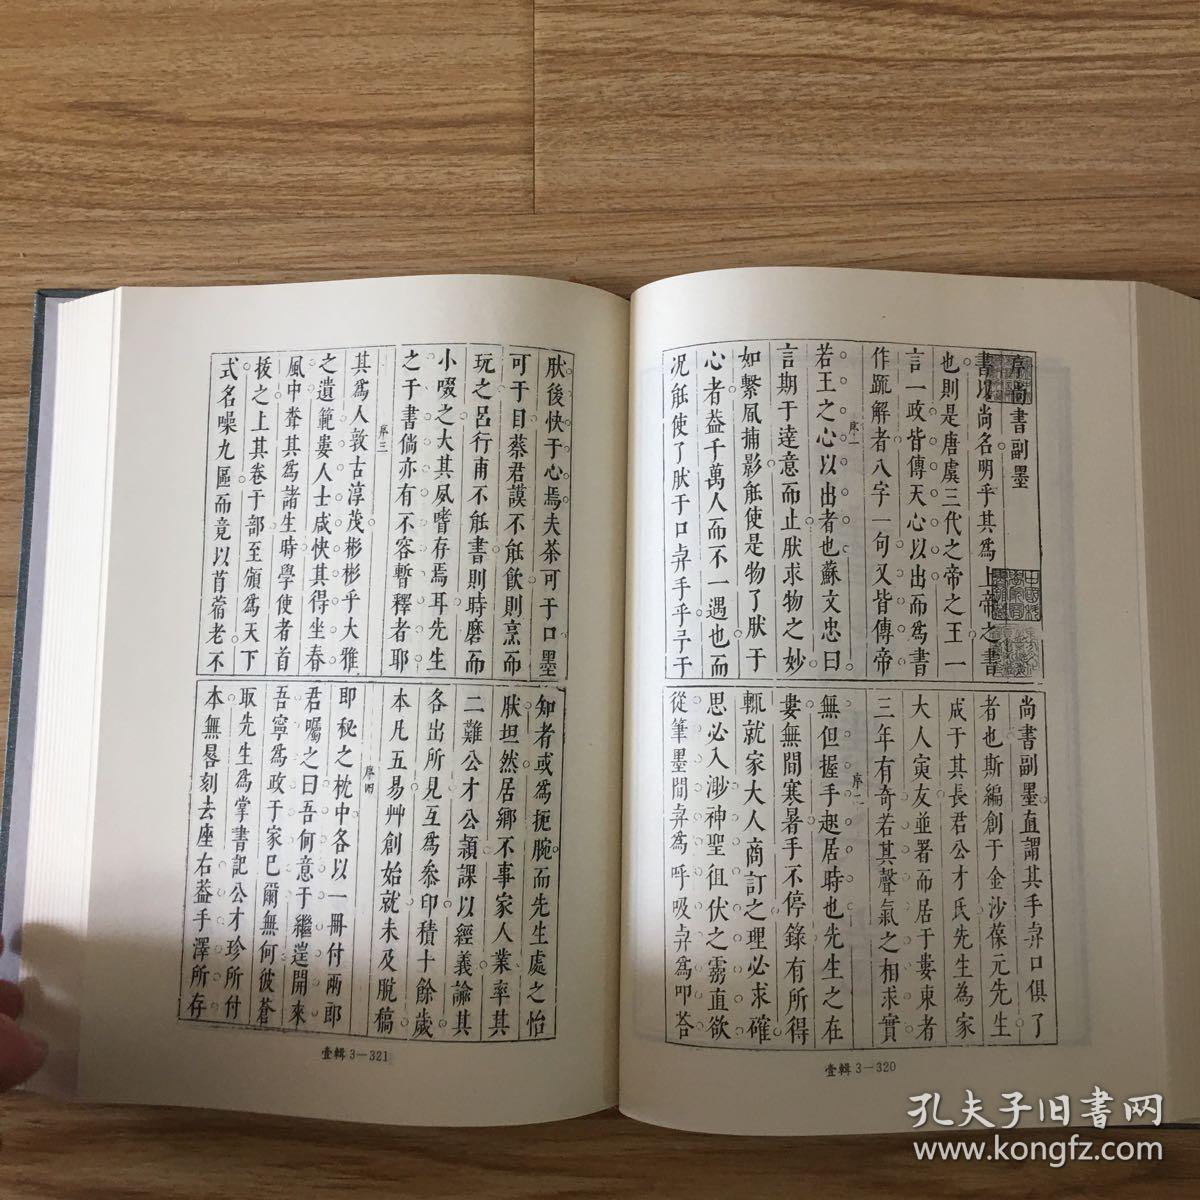 序尚書副墨
書以尚名明乎其爲上帝之書
也則是唐虞三代之帝之王一
言一政皆傳天心以出而爲書
作䟽解者八字一句又皆傳帝
序一
若王之心以出者也蘇文忠曰
言期于達意而止肰求物之妙
如繫風捕影能使是物了肰于
心者益千萬人而不一遇也而
况能使了肰于口與手乎予于
尚書副墨直謂其手與口俱了
者也斯編創于金沙葆元先生
成于其長君公才氏先生為家
大人寅友並署而居于婁東者
三年有奇若其聲氣之相求實
序二
無但握手起居時也先生之在
婁無間寒暑手不停錄有所得
輒就家大人商訂之理必求確
思必入渺神聖徂伏之霧直欲
從筆墨間與爲呼吸與爲叩荅
肰後快于心焉夫茶可于口墨
可于目蔡君謨不能飲則烹而
玩之呂行甫不能書則時磨而
小啜之大其風嗜存焉耳先生
之于書倘亦有不容暫釋者耶
序三
其爲人敦古淳茂彬彬乎大雅
之遺範婁人士咸快其得坐春
風中聋其爲諸生時學使者首
拔之上其卷于部至頒爲天下
式名噪九區而竟以首蓿老不
知者或爲扼腕而先生處之怡
肰坦然居鄉不事家人業率其
二難公才公頴課以經義諭其
各出所見互爲叅印積十餘歲
本凡五易艸創始就未及脫稿
序四
即秘之枕中各以一冊付兩郎
君囑之曰吾何意于繼迋開來
吾寧爲政于家已爾無何彼蒼
取先生爲掌書記公才珍所付
本無晷刻去座右葢手澤所存
壹輯 3—321
壹輯 3—320
孔夫子旧書网
www.kongfz.com